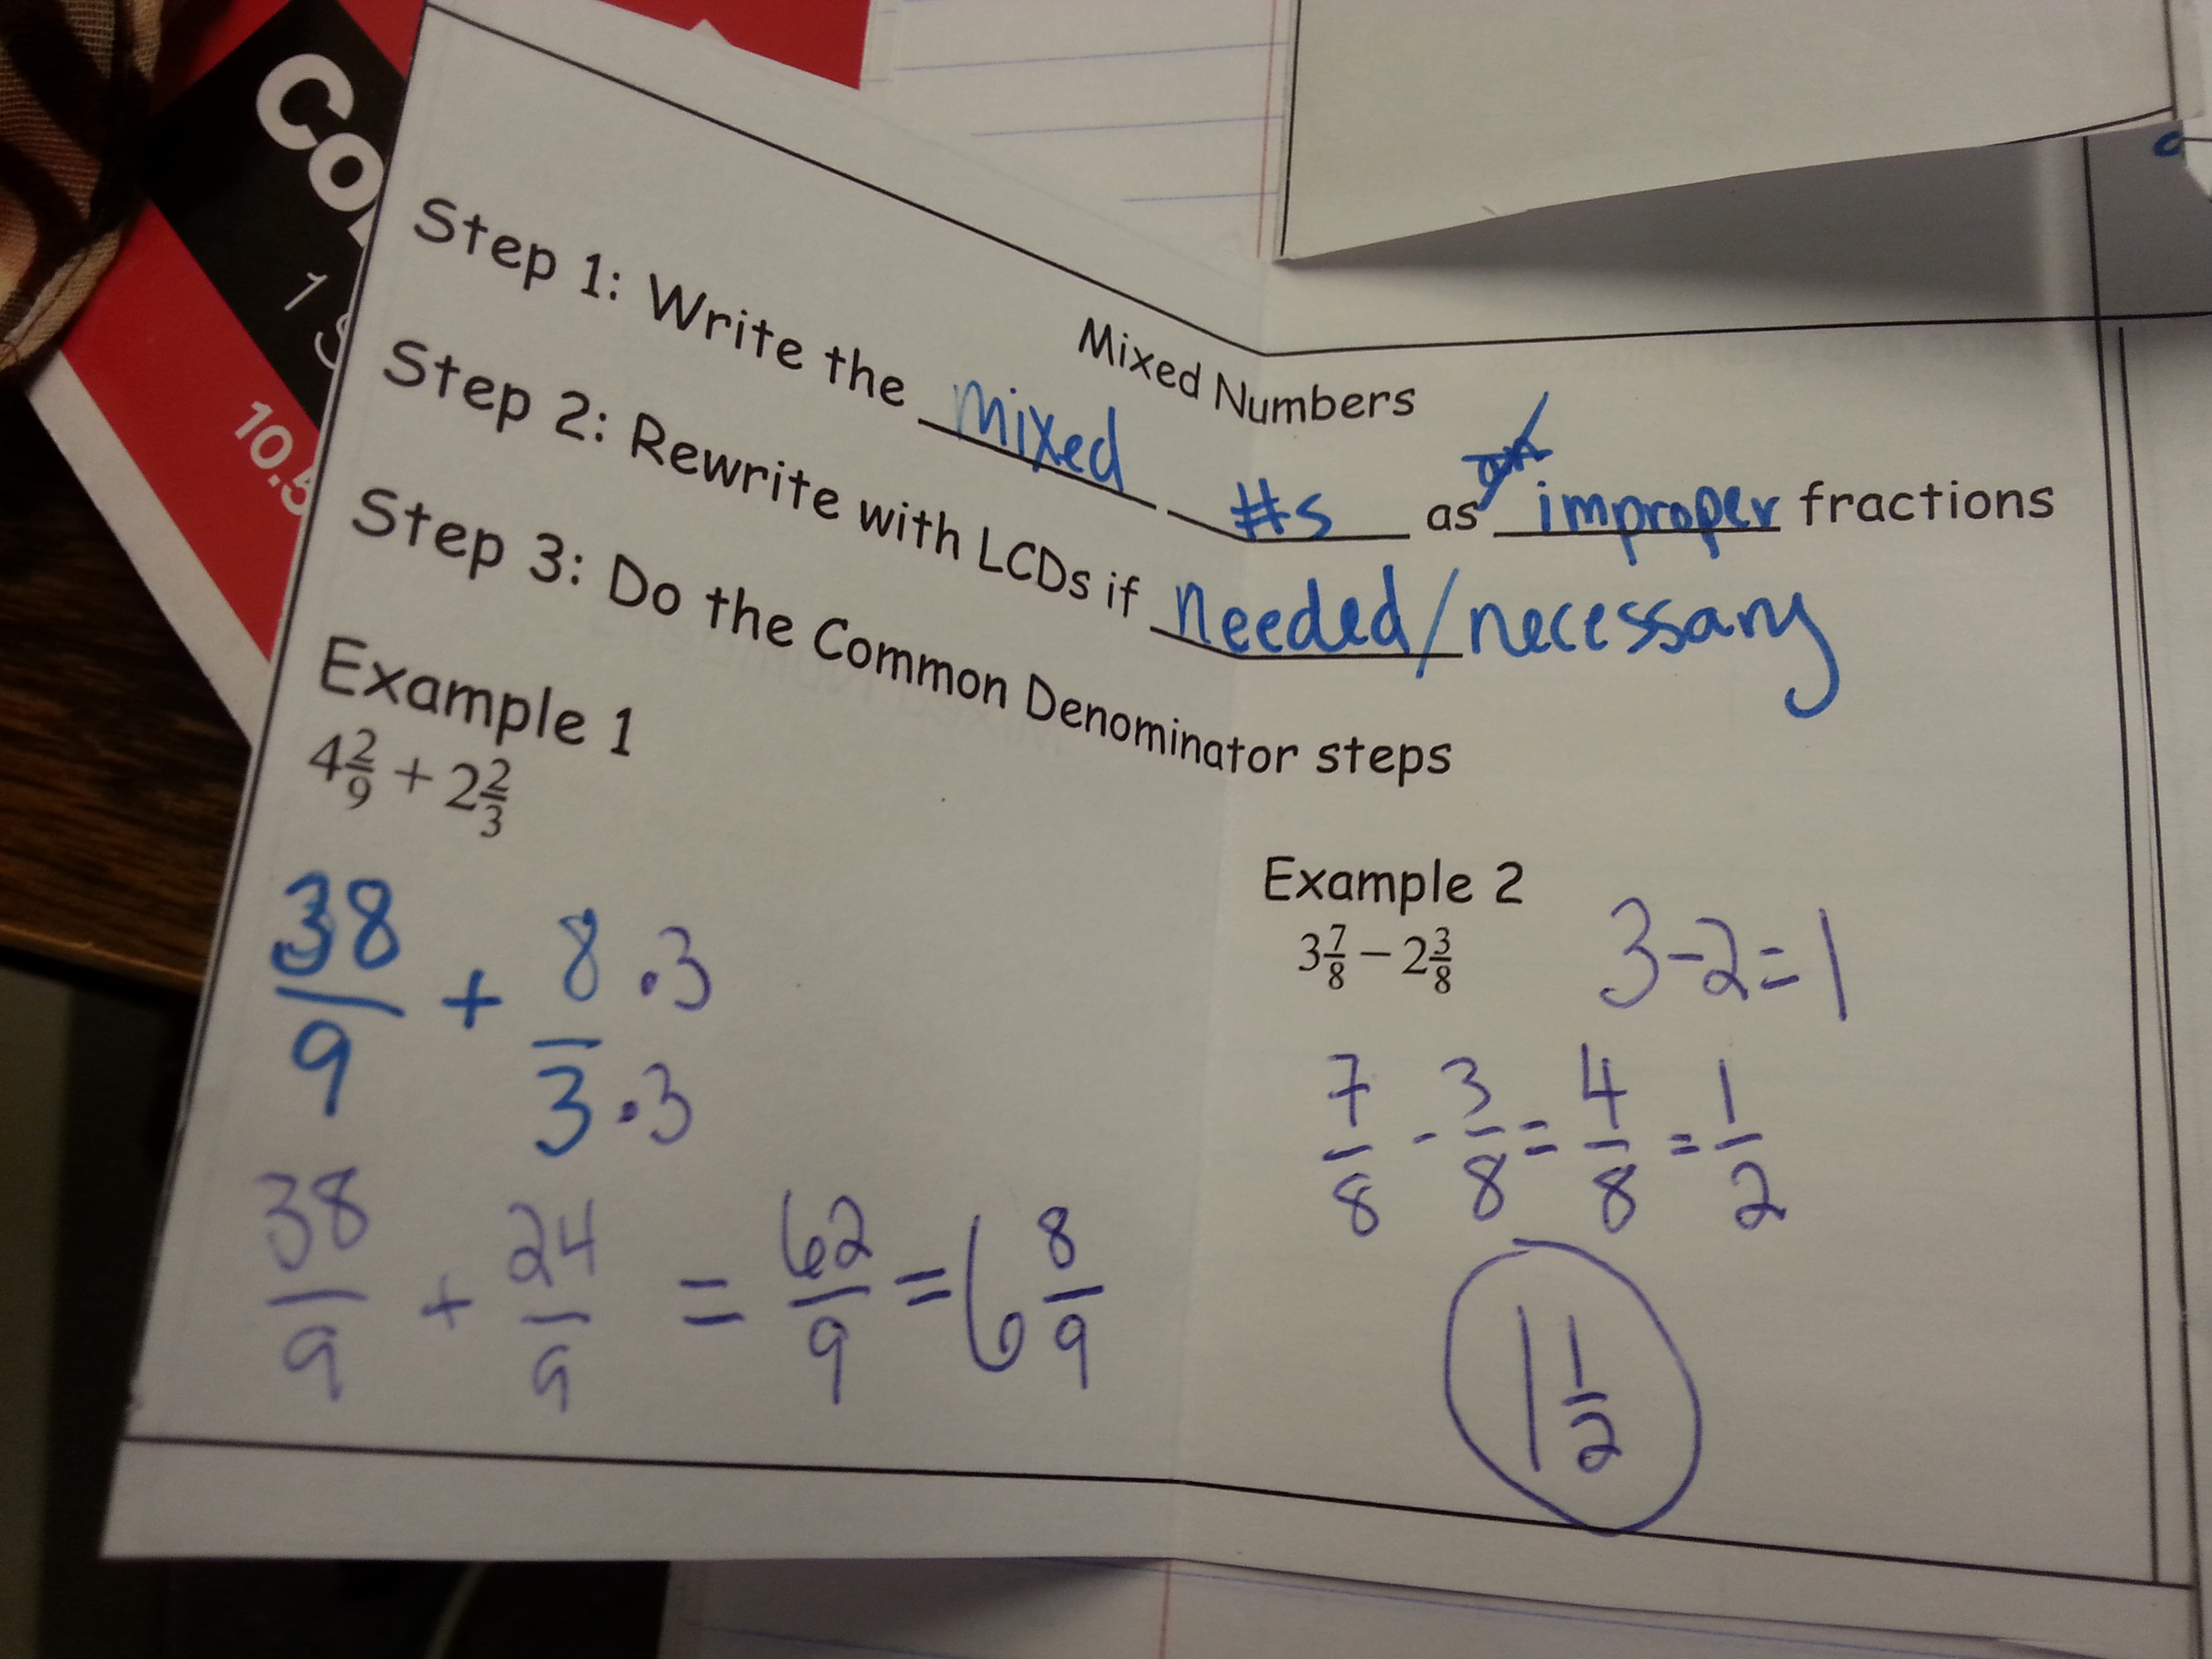 Co
1 S
10.5
Mixed Numbers
Step 1: Write the mixed #s as improper fractions
Step 2: Rewrite with LCDs if needed/necessary
Step 3: Do the Common Denominator steps
Example 1
4 2/9 + 2 2/3
38/9 + 8·3/3·3
38/9 + 24/9 = 62/9 = 6 8/9
Example 2
3 7/8 − 2 3/8
3-2=1
7/8 - 3/8 = 4/8 = 1/2
1 1/2